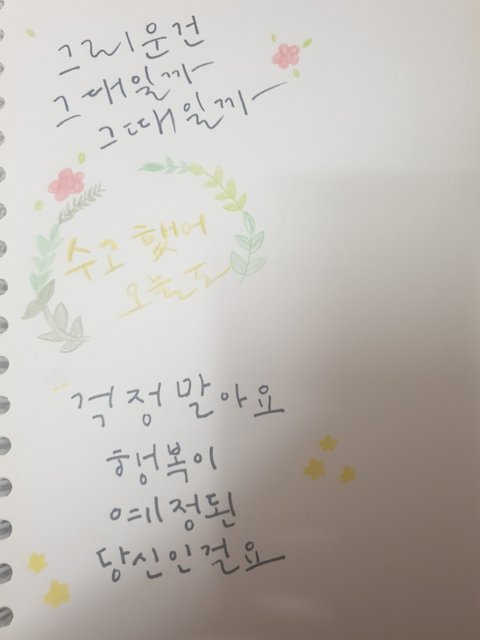 그리운건
그대일까
그때일까
수고했어
오늘도
걱정말아요
행복이
예정된
당신인걸요